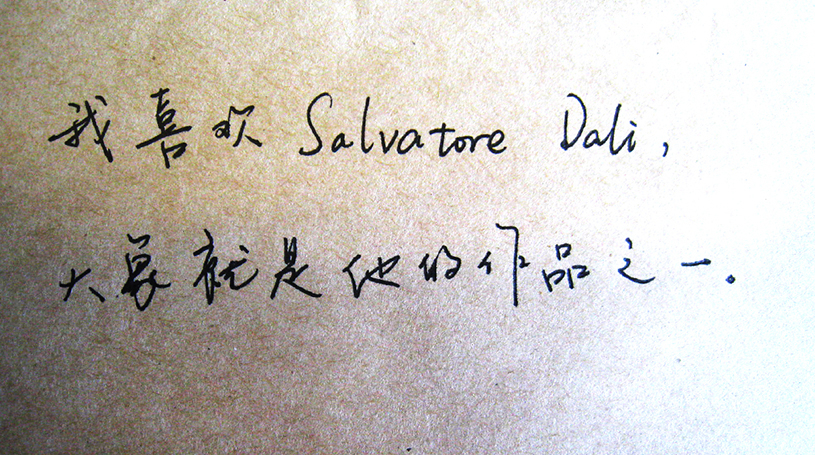 我喜欢 Salvatore Dali,
大象就是他的作品之一。